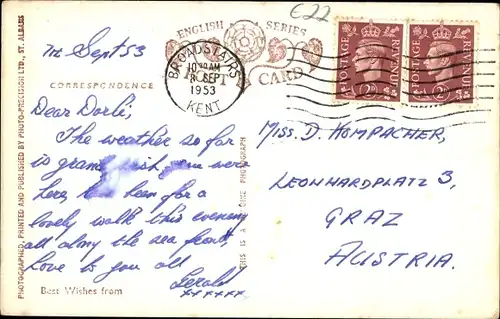 £22
ENGLISH SERIES
POST CARD
BROADSTAIRS
10:30 AM
8 SEPT
1953
KENT
POSTAGE REVENUE
2D
POSTAGE REVENUE
2D
7th Sept 53
CORRESPONDENCE
Dear Dorli,
The weather so far
is grand, wish you were
here, have been for a
lovely walk this evening
all along the sea front.
Love to you all
Gerald
xxxxxx
Best Wishes from
PHOTOGRAPHED, PRINTED AND PUBLISHED BY PHOTO-PRECISION LTD., ST. ALBANS
THIS IS A PHOTOGRAPH
MISS. D. KOMPACHER,
LEONHARDPLATZ 3,
GRAZ
AUSTRIA.